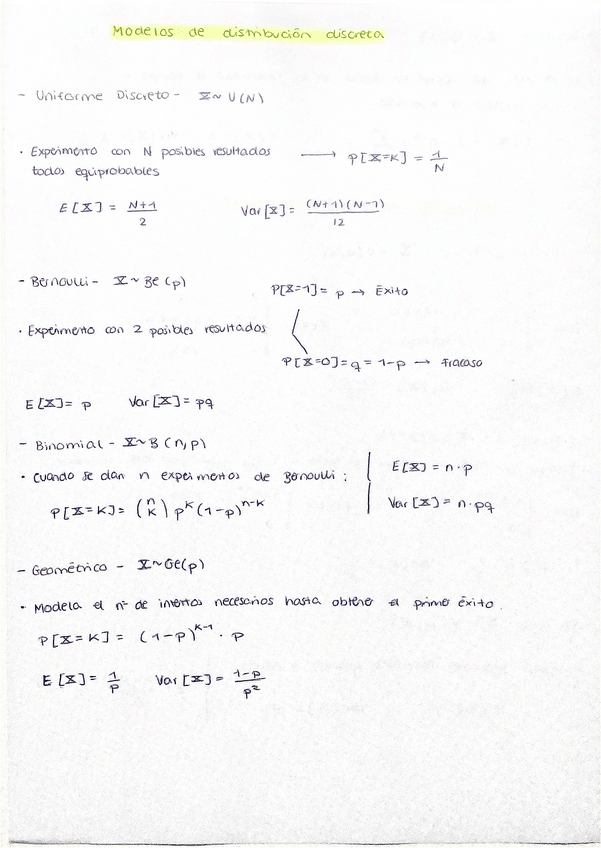 Modelos de distribución discreta
- Uniforme Discreto - X ~ U(N)
· Experimento con N posibles resultados todos equiprobables ⟶ P[X=K] = 1/N
E[X] = (N+1)/2 Var[X] = (N+1)(N-1)/12
- Bernoulli - X ~ Be(p)
P[X=1] = p → Éxito
· Experimento con 2 posibles resultados
P[X=0] = q = 1-p → Fracaso
E[X] = p Var[X] = pq
- Binomial - X ~ B(n,p)
· Cuando se dan n experimentos de Bernoulli:
E[X] = n·p
P[X=K] = (n K) p^K (1-p)^(n-K)
Var[X] = n·pq
- Geométrico - X ~ Ge(p)
· Modela el nº de intentos necesarios hasta obtener el primer éxito.
P[X=K] = (1-p)^(K-1) · p
E[X] = 1/p Var[X] = (1-p)/p²